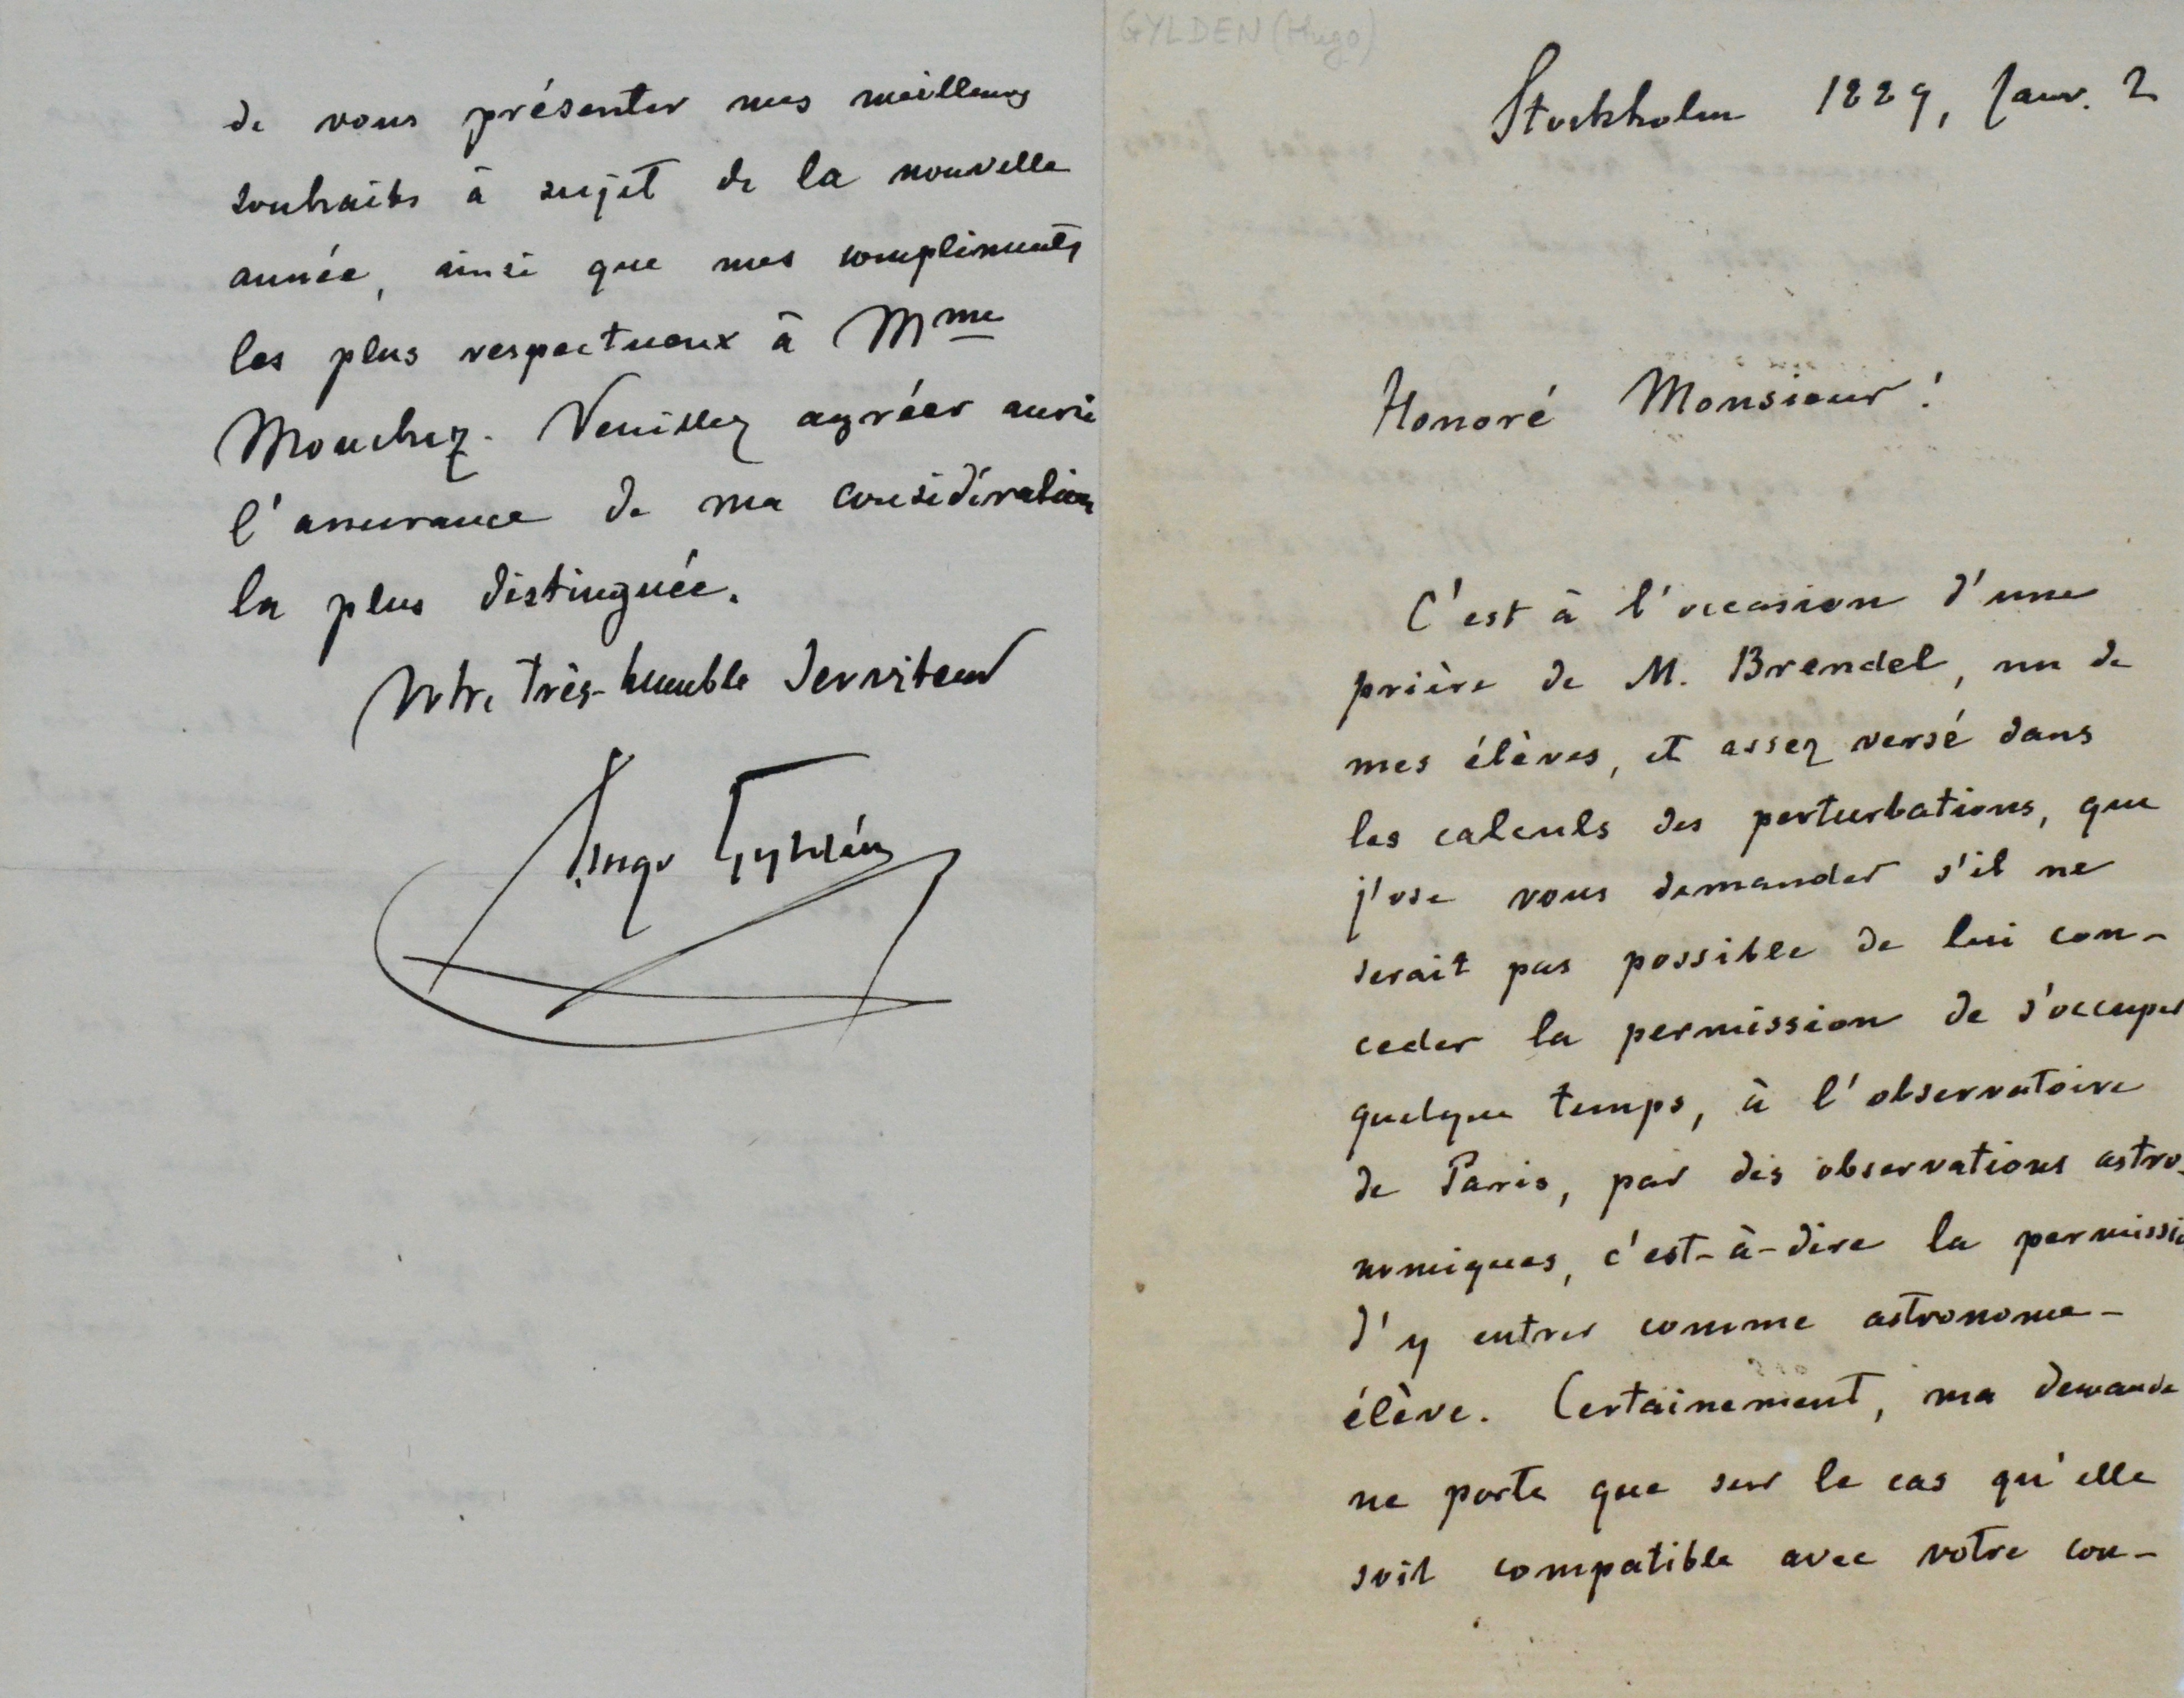 GYLDEN (Hugo)
Stockholm 1889, Janv. 2
Honoré Monsieur!
C'est à l'occasion d'une
prière de M. Brendel, un de
mes élèves, et assez versé dans
les calculs des perturbations, que
j'ose vous demander s'il ne
serait pas possible de lui con-
ceder la permission de s'occuper
quelque temps, à l'observatoire
de Paris, par des observations astro-
nomiques, c'est-à-dire la permissio
d'y entrer comme astronome-
élève. Certainement, ma demande
ne porte que sur le cas qu'elle
soit compatible avec votre con-
de vous présenter mes meilleurs
souhaits à sujet de la nouvelle
année, ainsi que mes compliments
les plus respectueux à Mme
Mouchez. Veuillez agréer aussi
l'assurance de ma considération
la plus distinguée.
Votre très-humble serviteur
Hugo Gyldén